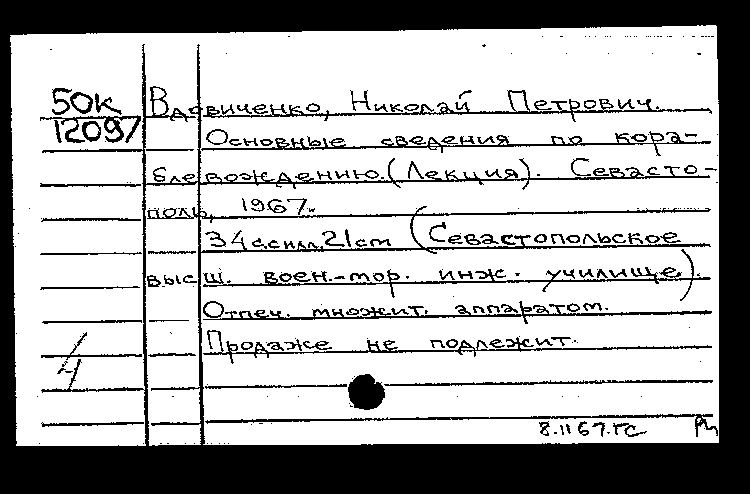 50К Вдовиченко, Николай Петрович.
12097 Основные сведения по кора-
блевождению. (Лекция). Севасто-
поль, 1967.
34 с. с илл. 21 cm (Севастопольское
высш. воен.-мор. инж. училище).
Отпеч. множит. аппаратом.
Продаже не подлежит.
4
8.II 67. ГС